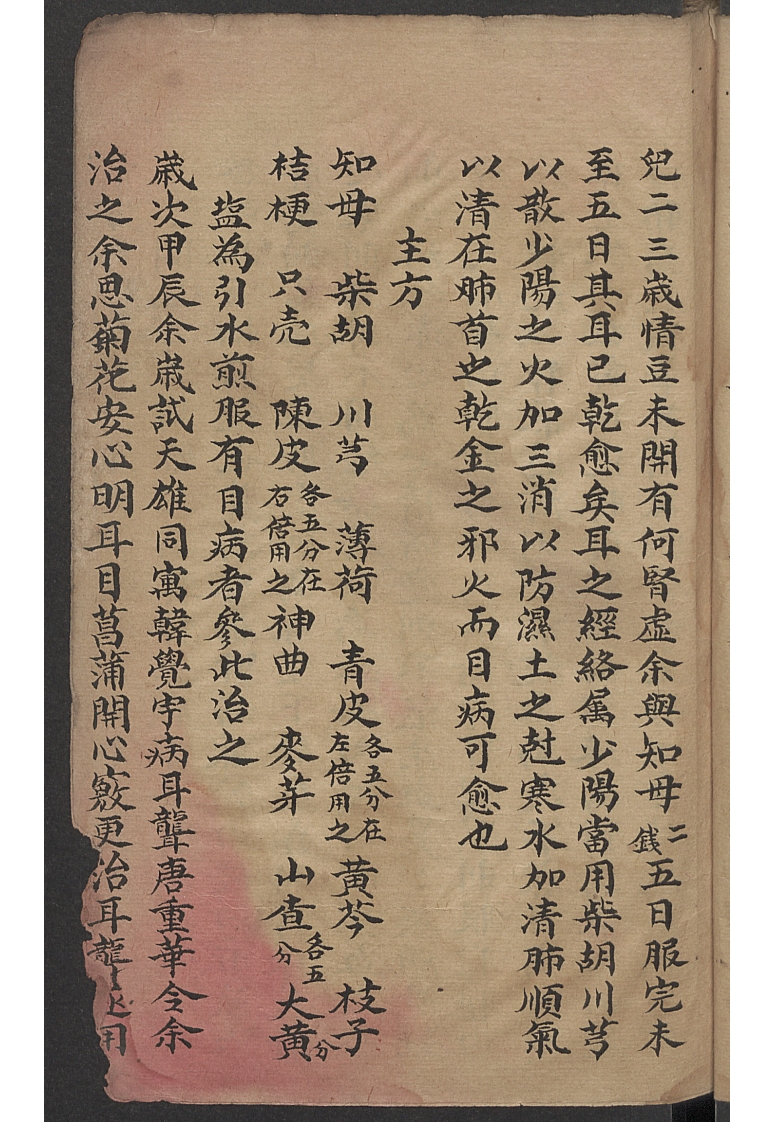 兒二三歲情豆未開有何腎虛余與知母二錢五日服完未
至五日其耳已乾愈矣耳之經絡属少陽當用柴胡川芎
以散少陽之火加三消以防濕土之尅寒水加清肺順氣
以清在肺首之乾金之邪火而目病可愈也
主方
知母 柴胡 川芎 薄荷 青皮各五分在左倍用之 黃芩 枝子
桔梗 只壳 陳皮各五分在右倍用之 神曲 麥芽 山查各五分 大黃分
塩為引水煎服有目病者參此治之
歲次甲辰余歲試天雄同寓韓覺宇病耳聾唐重華令余
治之余思菊花安心明耳目菖蒲開心竅更治耳聾用